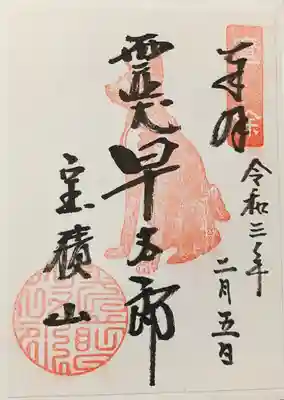 奉拝
令和三年
二月五日
霊犬早太郎
宝積山